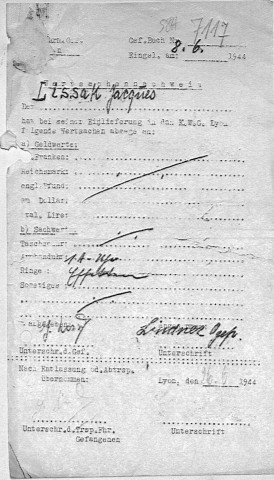 Gef.Buch N 7117
Eingel. am: 8.6. 1944
Wertsachennachweis
Lissak Jacques
Der
hat bei seiner Einlieferung in das K.W.G. Lyon
folgende Wertsachen abgegeben:
a) Geldwerte:
Franken:
Reichsmark:
engl.Pfund:
Dollar:
ital. Lire:
b) Sachwerte:
Taschenuhr:
Armbanduhr: 1 A-Uhr
Ringe:
Sonstiges
Lindner
Unterschr.d.Gef. Unterschrift
Nach Entlassung od.Abtrsp.
übernommen: Lyon, den 1944
Unterschr.d.Trsp.Fhr. Unterschrift
Gefangenen